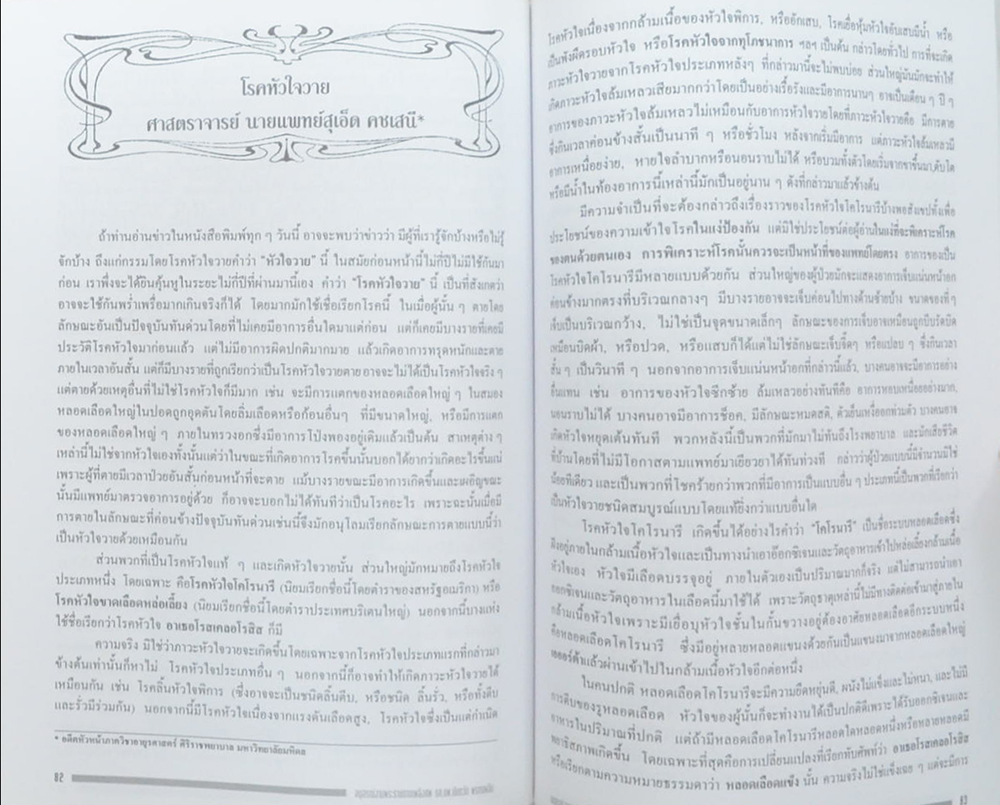 โรคหัวใจวาย
ศาสตราจารย์ นายแพทย์สุเอ็ด คชเสนี*
ถ้าท่านอ่านข่าวในหนังสือพิมพ์ทุก ๆ วันนี้ อาจจะพบว่าข่าวว่า มีผู้ที่เรารู้จักบ้างหรือไม่รู้
จักบ้าง ถึงแก่กรรมโดยโรคหัวใจวายคำว่า "หัวใจวาย" นี้ ในสมัยก่อนหน้านี้ไม่กี่ปีไม่มีใช้กันมา
ก่อน เราพึ่งจะได้ยินคุ้นหูในระยะไม่กี่ปีที่ผ่านมานี้เอง คำว่า "โรคหัวใจวาย" นี้ เป็นที่สังเกตว่า
อาจจะใช้กันพร่ำเพรื่อมากเกินจริงก็ได้ โดยมากมักใช้เชื่อเรียกโรคนี้ ในเมื่อผู้นั้น ๆ ตายโดย
ลักษณะอันเป็นปัจจุบันทันด่วนโดยที่ไม่เคยมีอาการอื่นใดมาแต่ก่อน แต่ก็เคยมีบางรายที่เคยมี
ประวัติโรคหัวใจมาก่อนแล้ว แต่ไม่มีอาการผิดปกติมากมาย แล้วเกิดอาการทรุดหนักและตาย
ภายในเวลาอันสั้น แต่ก็มีบางรายที่ถูกเรียกว่าเป็นโรคหัวใจวายตาย อาจจะไม่ได้เป็นโรคหัวใจจริง ๆ
แต่ตายด้วยเหตุอื่นที่ไม่ใช่โรคหัวใจก็มีมาก เช่น จะมีการแตกของหลอดเลือดใหญ่ ๆ ในสมอง
หลอดเลือดใหญ่ในปอดถูกอุดตันโดยลิ่มเลือดหรือก้อนอื่นๆ ที่มีขนาดใหญ่, หรือมีการแตก
ของหลอดเลือดใหญ่ ๆ ภายในทรวงอกซึ่งมีอาการโป่งพองอยู่เดิมแล้วเป็นต้น สาเหตุต่าง ๆ
เหล่านี้ไม่ใช่จากหัวใจเองทั้งนั้นแต่ว่าในขณะที่เกิดอาการโรคขึ้นนั้นบอกได้ยากว่าเกิดอะไรขึ้นแน่
เพราะผู้ที่ตายมีเวลาป่วยอันสั้นก่อนหน้าที่จะตาย แม้บางรายขณะมีอาการเกิดขึ้นและเผอิญขณะ
นั้นมีแพทย์มาตรวจอาการอยู่ด้วย ก็อาจจะบอกไม่ได้ทันทีว่าเป็นโรคอะไร เพราะฉะนั้นเมื่อมี
การตายในลักษณะที่ค่อนข้างปัจจุบันทันด่วนเช่นนี้จึงมักอนุโลมเรียกลักษณะการตายแบบนี้ว่า
เป็นหัวใจวายด้วยเหมือนกัน
ส่วนพวกที่เป็นโรคหัวใจแท้ ๆ และเกิดหัวใจวายนั้น ส่วนใหญ่มักหมายถึงโรคหัวใจ
ประเภทหนึ่ง โดยเฉพาะ คือโรคหัวใจโคโรนารี (นิยมเรียกชื่อนี้โดยตำราของสหรัฐอเมริกา) หรือ
โรคหัวใจขาดเลือดหล่อเลี้ยง (นิยมเรียกชื่อนี้โดยตำราประเทศบริเตนใหญ่) นอกจากนี้บางแห่ง
ใช้ชื่อเรียกว่าโรคหัวใจ อาเธอโรสเคลอโรสิส ก็มี
ความจริง มิใช่ว่าภาวะหัวใจวายจะเกิดขึ้นโดยเฉพาะจากโรคหัวใจประเภทแรกที่กล่าวมา
ข้างต้นเท่านั้นก็หาไม่ โรคหัวใจประเภทอื่น ๆ นอกจากนี้ก็อาจทำให้เกิดภาวะหัวใจวายได้
เหมือนกัน เช่น โรคลิ้นหัวใจพิการ (ซึ่งอาจจะเป็นชนิดลิ้นตีบ, หรือชนิด ลิ้นรั่ว, หรือทั้งตีบ
และรั่วมีร่วมกัน) นอกจากนี้มีโรคหัวใจเนื่องจากแรงดันเลือดสูง, โรคหัวใจซึ่งเป็นแต่กำเนิด
* อดีตหัวหน้าภาควิชาอายุรศาสตร์ ศิริราชพยาบาล มหาวิทยาลัยมหิดล
82
โรคหัวใจเนื่องจากกล้ามเนื้อของหัวใจพิการ, หรืออักเสบ, โรคเยื่อหุ้มหัวใจอักเสบมีน้ำ หรือ
เป็นพังผืดรอบหัวใจ หรือโรคหัวใจจากทุโภชนาการ ฯลฯ เป็นต้น กล่าวโดยทั่วไป การที่จะเกิด
ภาวะหัวใจวายจากโรคหัวใจประเภทหลังๆ ที่กล่าวมานี้จะไม่พบบ่อย ส่วนใหญ่มันมักจะทำให้
เกิดภาวะหัวใจล้มเหลวเสียมากกว่าโดยเป็นอย่างเรื้อรังและมีอาการนานๆ อาจเป็นเดือน ๆ ปี ๆ
อาการของภาวะหัวใจล้มเหลวไม่เหมือนกับอาการหัวใจวายโดยที่ภาวะหัวใจวายคือ มีการตาย
ซึ่งกินเวลาค่อนข้างสั้นเป็นนาที ๆ หรือชั่วโมง หลังจากเริ่มมีอาการ แต่ภาวะหัวใจล้มเหลวมี
อาการเหนื่อยง่าย, หายใจลำบากหรือนอนราบไม่ได้ หรือบวมทั้งตัวโดยเริ่มจากขาขึ้นมา,ตับโต
หรือมีน้ำในท้องอาการนี้เหล่านี้มักเป็นอยู่นาน ๆ ดังที่กล่าวมาแล้วข้างต้น
มีความจำเป็นที่จะต้องกล่าวถึงเรื่องราวของโรคหัวใจโคโรนารีบ้างพอสังเขปทั้งเพื่อ
ประโยชน์ของความเข้าใจโรคในแง่ป้องกัน แต่มิใช่ประโยชน์ต่อผู้อ่านในแง่ที่จะพิเคราะห์โรค
ของตนด้วยตนเอง การพิเคราะห์โรคนั้นควรจะเป็นหน้าที่ของแพทย์โดยตรง อาการของเป็น
โรคหัวใจโคโรนารีมีหลายแบบด้วยกัน ส่วนใหญ่ของผู้ป่วยมักจะแสดงอาการเจ็บแน่นหน้าอก
ค่อนข้างมากตรงที่บริเวณกลางๆ มีบางรายอาจจะเจ็บค่อนไปทางด้านซ้ายบ้าง ขนาดของที่ๆ
เจ็บเป็นบริเวณกว้าง, ไม่ใช่เป็นจุดขนาดเล็กๆ ลักษณะของการเจ็บอาจเหมือนถูกบีบรัดบิด
เหมือนบิดผ้า, หรือปวด, หรือแสบก็ได้แต่ไม่ใช่ลักษณะเจ็บจี๊ดๆ หรือแปลบ ๆ ซึ่งกินเวลา
สั้น ๆ เป็นวินาที ๆ นอกจากอาการเจ็บแน่นหน้าอกที่กล่าวนี้แล้ว, บางคนอาจจะมีอาการอย่าง
อื่นแทน เช่น อาการของหัวใจซีกซ้าย ล้มเหลวอย่างทันทีคือ อาการหอบเหนื่อยอย่างมาก,
นอนราบไม่ได้ บางคนอาจมีอาการช็อค, มีลักษณะหมดสติ, ตัวเย็นเหงื่อออกท่วมตัว บางคนอาจ
เกิดหัวใจหยุดเต้นทันที พวกหลังนี้เป็นพวกที่มักมาไม่ทันถึงโรงพยาบาล และมักเสียชีวิต
ที่บ้านโดยที่ไม่มีโอกาสตามแพทย์มาเยียวยาได้ทันท่วงที กล่าวว่าผู้ป่วยแบบนี้มีจำนวนไม่ใช่
น้อยทีเดียวและเป็นพวกที่โชคร้ายกว่าพวกที่มีอาการเป็นแบบอื่น ๆ ประเภทนี้เป็นพวกที่เรียกว่า
เป็นหัวใจวายชนิดสมบูรณ์แบบโดยแท้ยิ่งกว่าแบบอื่นใด
โรคหัวใจโคโรนารี เกิดขึ้นได้อย่างไรคำว่า "โคโรนารี" เป็นชื่อระบบหลอดเลือดซึ่ง
ฝังอยู่ภายในกล้ามเนื้อหัวใจและเป็นทางนำเอาอ๊อกซิเจนและวัตถุอาหารเข้าไปหล่อเลี้ยงกล้ามเนื้อ
หัวใจเอง หัวใจมีเลือดบรรจุอยู่ ภายในตัวเองเป็นปริมาณมากก็จริง แต่ไม่สามารถนำเอา
ออกซิเจนและวัตถุอาหารในเลือดนี้มาใช้ได้ เพราะวัตถุธาตุเหล่านี้ไม่มีทางติดต่อเข้ามาสู่ภายใน
กล้ามเนื้อหัวใจเพราะมีเยื่อบุหัวใจชั้นในกั้นขวางอยู่ต้องอาศัยหลอดเลือดอีกระบบหนึ่ง
คือหลอดเลือดโคโรนารี ซึ่งมีอยู่หลายหลอดแขนงด้วยกันเป็นแขนงมาจากหลอดเลือดใหญ่
เอออร์ต้าแล้วผ่านเข้าไปในกล้ามเนื้อหัวใจอีกต่อหนึ่ง
ในคนปกติ หลอดเลือดโคโรนารีจะมีความยืดหยุ่นดี, ผนังไม่แข็งและไม่หนา, และไม่มี
การตีบของรูหลอดเลือด หัวใจของผู้นั้นก็จะทำงานได้เป็นปกติดีเพราะได้รับออกซิเจนและ
อาหารในปริมาณที่ปกติ แต่ถ้ามีหลอดเลือดโคโรนารีหลอดใดหลอดหนึ่งหรือหลายหลอดมี
พยาธิสภาพเกิดขึ้น โดยเฉพาะที่สุดคือการเปลี่ยนแปลงที่เรียกทับศัพท์ว่า อาเธอโรสเคลอโรสิส
หรือเรียกตามความหมายธรรมดาว่า หลอดเลือดแข็ง นั้น ความจริงไม่ใช่แข็งเฉย ๆ แต่จะมีการ